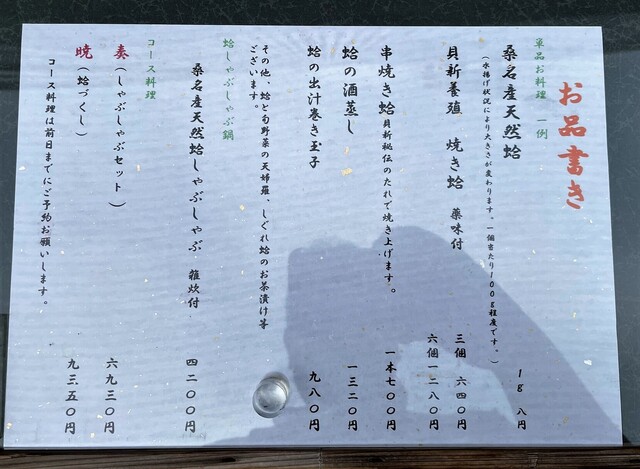 お品書き
単品お料理 一例
桑名産天然蛤 1g 八円
(水揚げ状況により大きさが変わります。一個当たり100g程度です。)
貝新養殖 焼き蛤 薬味付 三個 六四〇円
六個一二八〇円
串焼き蛤 貝新秘伝のたれで焼き上げます。 一本七〇〇円
蛤の酒蒸し 一三二〇円
蛤の出汁巻き玉子 九八〇円
その他、蛤と旬野菜の天婦羅、しぐれ蛤のお茶漬け等
ございます。
蛤しゃぶしゃぶ鍋
桑名産天然蛤しゃぶしゃぶ 雑炊付 四二〇〇円
コース料理
奏(しゃぶしゃぶセット) 六九三〇円
暁(蛤づくし) 九三五〇円
コース料理は前日までにご予約お願いします。